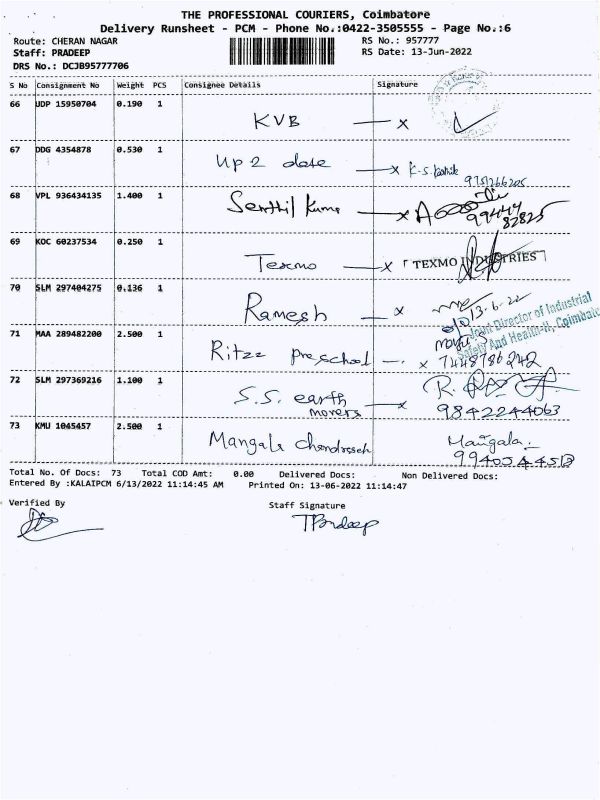 THE PROFESSIONAL COURIERS, Coimbatore
Delivery Runsheet - PCM - Phone No.:0422-3505555 - Page No.:6
Route: CHERAN NAGAR RS No.: 957777
Staff: PRADEEP RS Date: 13-Jun-2022
DRS No.: DCJB95777706
S No Consignment No Weight PCS Consignee Details Signature
66 UDP 15950704 0.190 1
KVB — x
67 DDG 4354878 0.530 1
up 2 date — x K-S.
9751266205
68 VPL 936434135 1.400 1
Senthil Kumar — x
99444
82825
69 KOC 60237534 0.250 1
Texmo — x TEXMO INDUSTRIES
70 SLM 297404275 0.136 1
Ramesh — x 13-6-22
Joint Director of Industrial
Safety And Health-II, Coimbatore
71 MAA 289482200 2.500 1
Ritzz preschool — x 7448786242
72 SLM 297369216 1.100 1
S.S. earth R.
movers — x 9842244063
73 KMU 1045457 2.500 1
Mangala Chandrasek Mangala.
Total No. Of Docs: 73 Total COD Amt: 0.00 Delivered Docs: Non Delivered Docs:
Entered By :KALAIPCM 6/13/2022 11:14:45 AM Printed On: 13-06-2022 11:14:47
Verified By Staff Signature